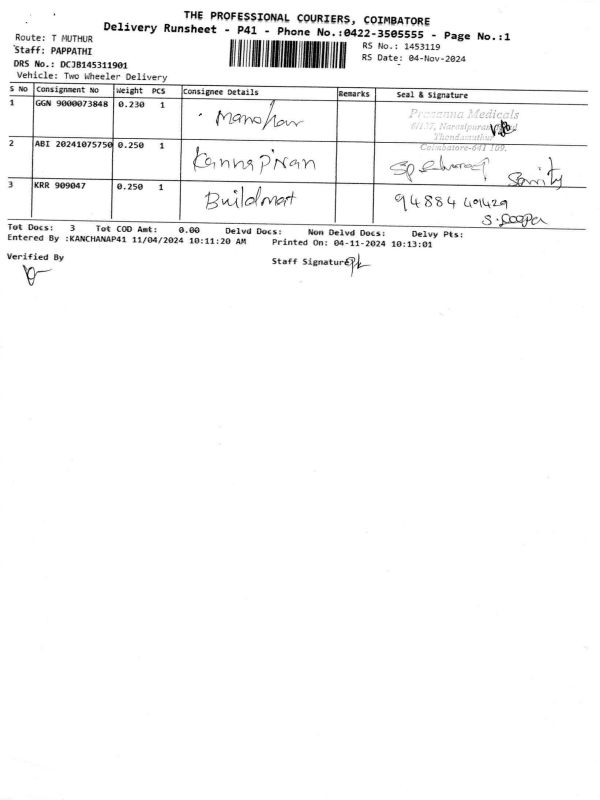 THE PROFESSIONAL COURIERS, COIMBATORE
Delivery Runsheet - P41 - Phone No.:0422-3505555 - Page No.:1
Route: T MUTHUR
RS No.: 1453119
Staff: PAPPATHI
RS Date: 04-Nov-2024
DRS No.: DCJB145311901
Vehicle: Two Wheeler Delivery
S No Consignment No Weight PCS Consignee Details Remarks Seal & Signature
1 GGN 9000073848 0.230 1 Manohar
Prasanna Medicals
6/137, Narasipuram Road
Thondamuthur
Coimbatore-641 109.
2 ABI 20241075750 0.250 1 KannaPiran
3 KRR 909047 0.250 1 Buildmat 94884 49429
Tot Docs: 3 Tot COD Amt: 0.00 Delvd Docs: Non Delvd Docs: Delvy Pts:
Entered By :KANCHANAP41 11/04/2024 10:11:20 AM Printed On: 04-11-2024 10:13:01
Verified By
Staff Signature